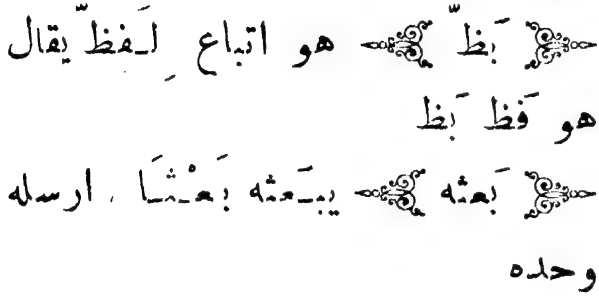 بَظّ هو اتباع لِفَظّ يقال
هو فَظ بَظ
بَعثه يبـَعثه بَعْثـَا . ارسله
وحده